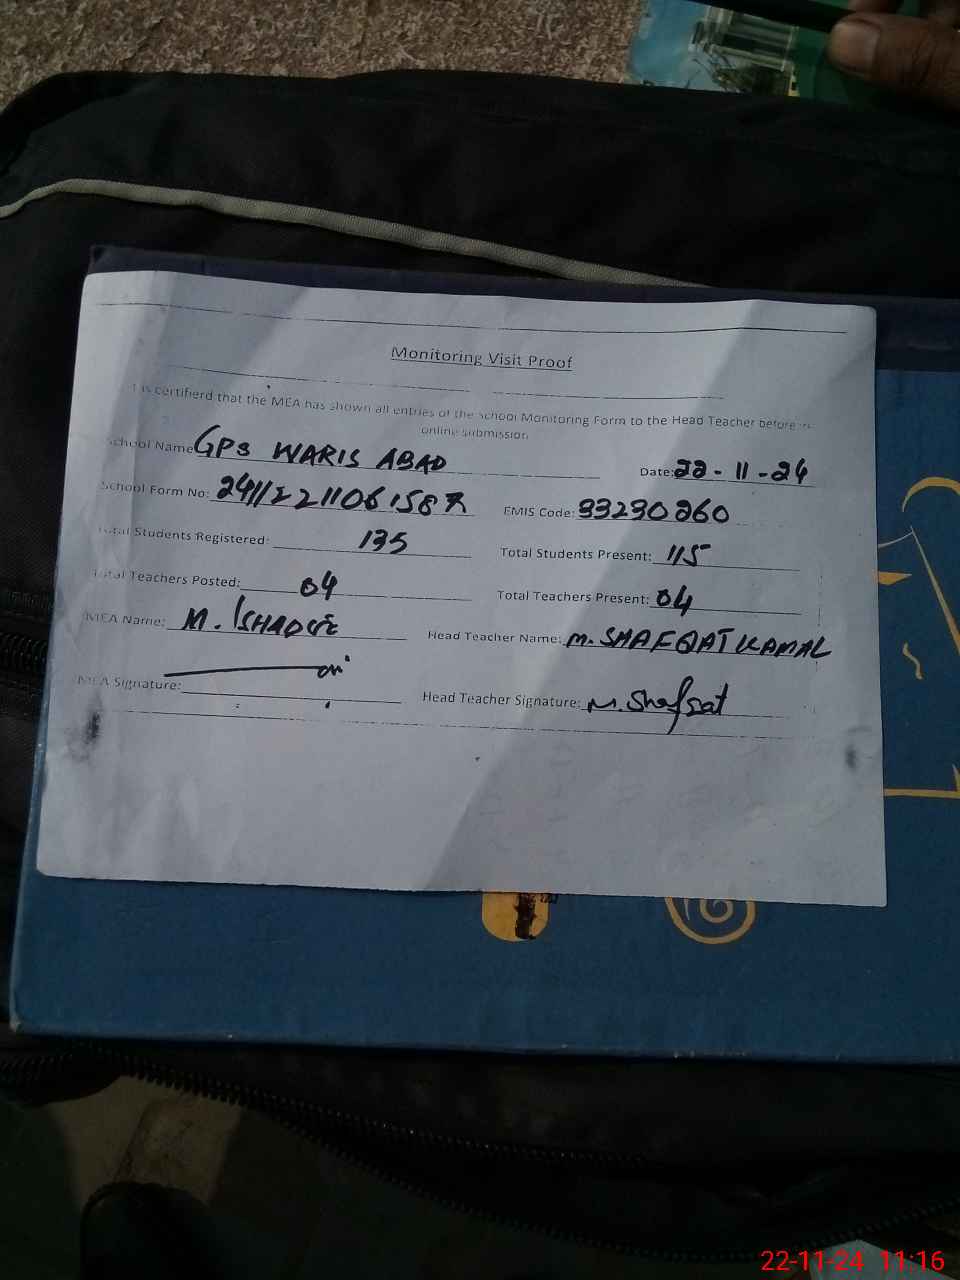 Monitoring Visit Proof
t is certifierd that the MEA has shown all entries of the School Monitoring Form to the Head Teacher before
online submission
School Name GPS WARIS ABAD Date: 22-11-24
School Form No: EMIS Code: 33230260
Total Students Registered: 135 Total Students Present: 115
Total Teachers Posted: 04 Total Teachers Present: 04
MEA Name: M. Head Teacher Name: M. SHAFQAT KAMAL
MEA Signature: Head Teacher Signature: M. Shafqat
22-11-24 11:16